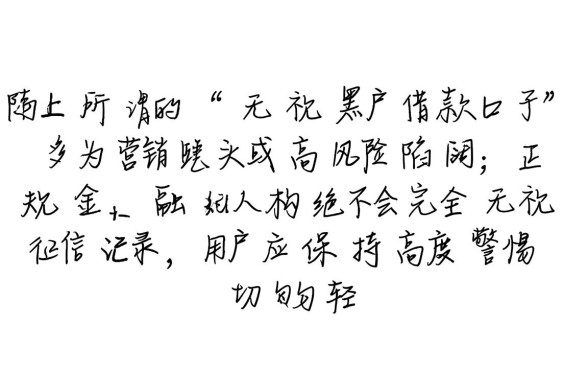 陏上所谓的“无视黑户借款口子”
多为营销噱头或高风险陷阔；正
规金融机构绝不会完全无视
征信记录，用户应保持高度警惕
切的轻